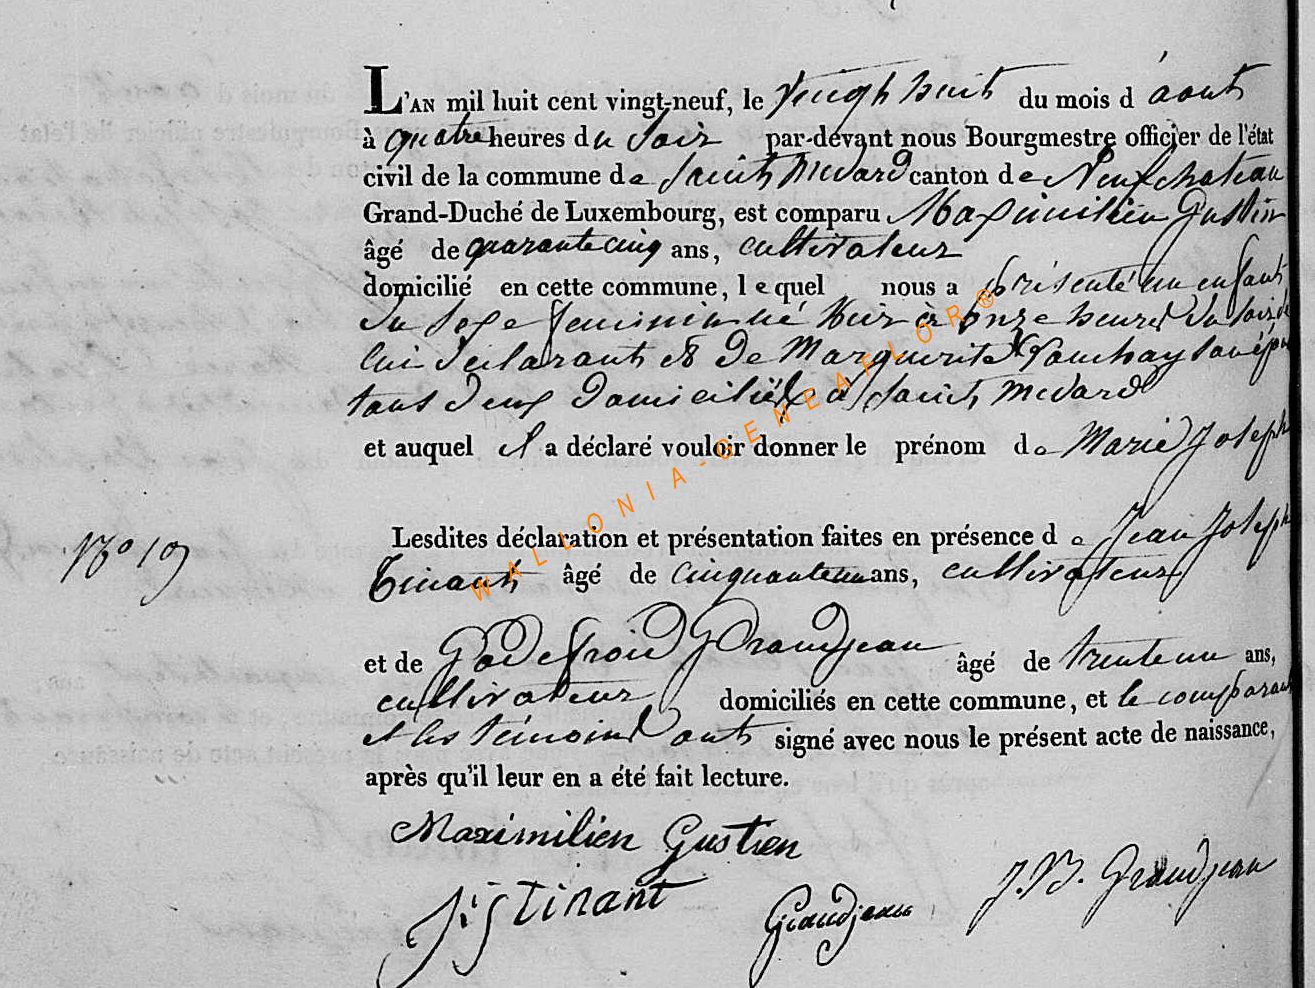 L'AN mil huit cent vingt-neuf, le vingt huit du mois d'aout
à quatre heures du Soir par-devant nous Bourgmestre officier de l'état
civil de la commune de Saint Medard canton de Neufchateau
Grand-Duché de Luxembourg, est comparu Maximilien Gustin
âgé de quarante cinq ans, cultivateur
domicilié en cette commune, lequel nous a présenté un enfant
du Sexe feminin né hier à onze heures du Soir de
lui declarant et de Marguerite Pouchay son épou
tous deux domiciliés à Saint Medard
et auquel il a déclaré vouloir donner le prénom de Marie Joseph
N° 19
Lesdites déclaration et présentation faites en présence de Jean Joseph
Tinant âgé de cinquante un ans, cultivateur
et de Godefroid Grandjean âgé de trente un ans,
cultivateur domiciliés en cette commune, et le comparant
et les témoins ont signé avec nous le présent acte de naissance,
après qu'il leur en a été fait lecture.
Maximilien Gustien
J: J Tinant Grandjean J. B. Grandjean
WALLONIA-GENEAFLOR®